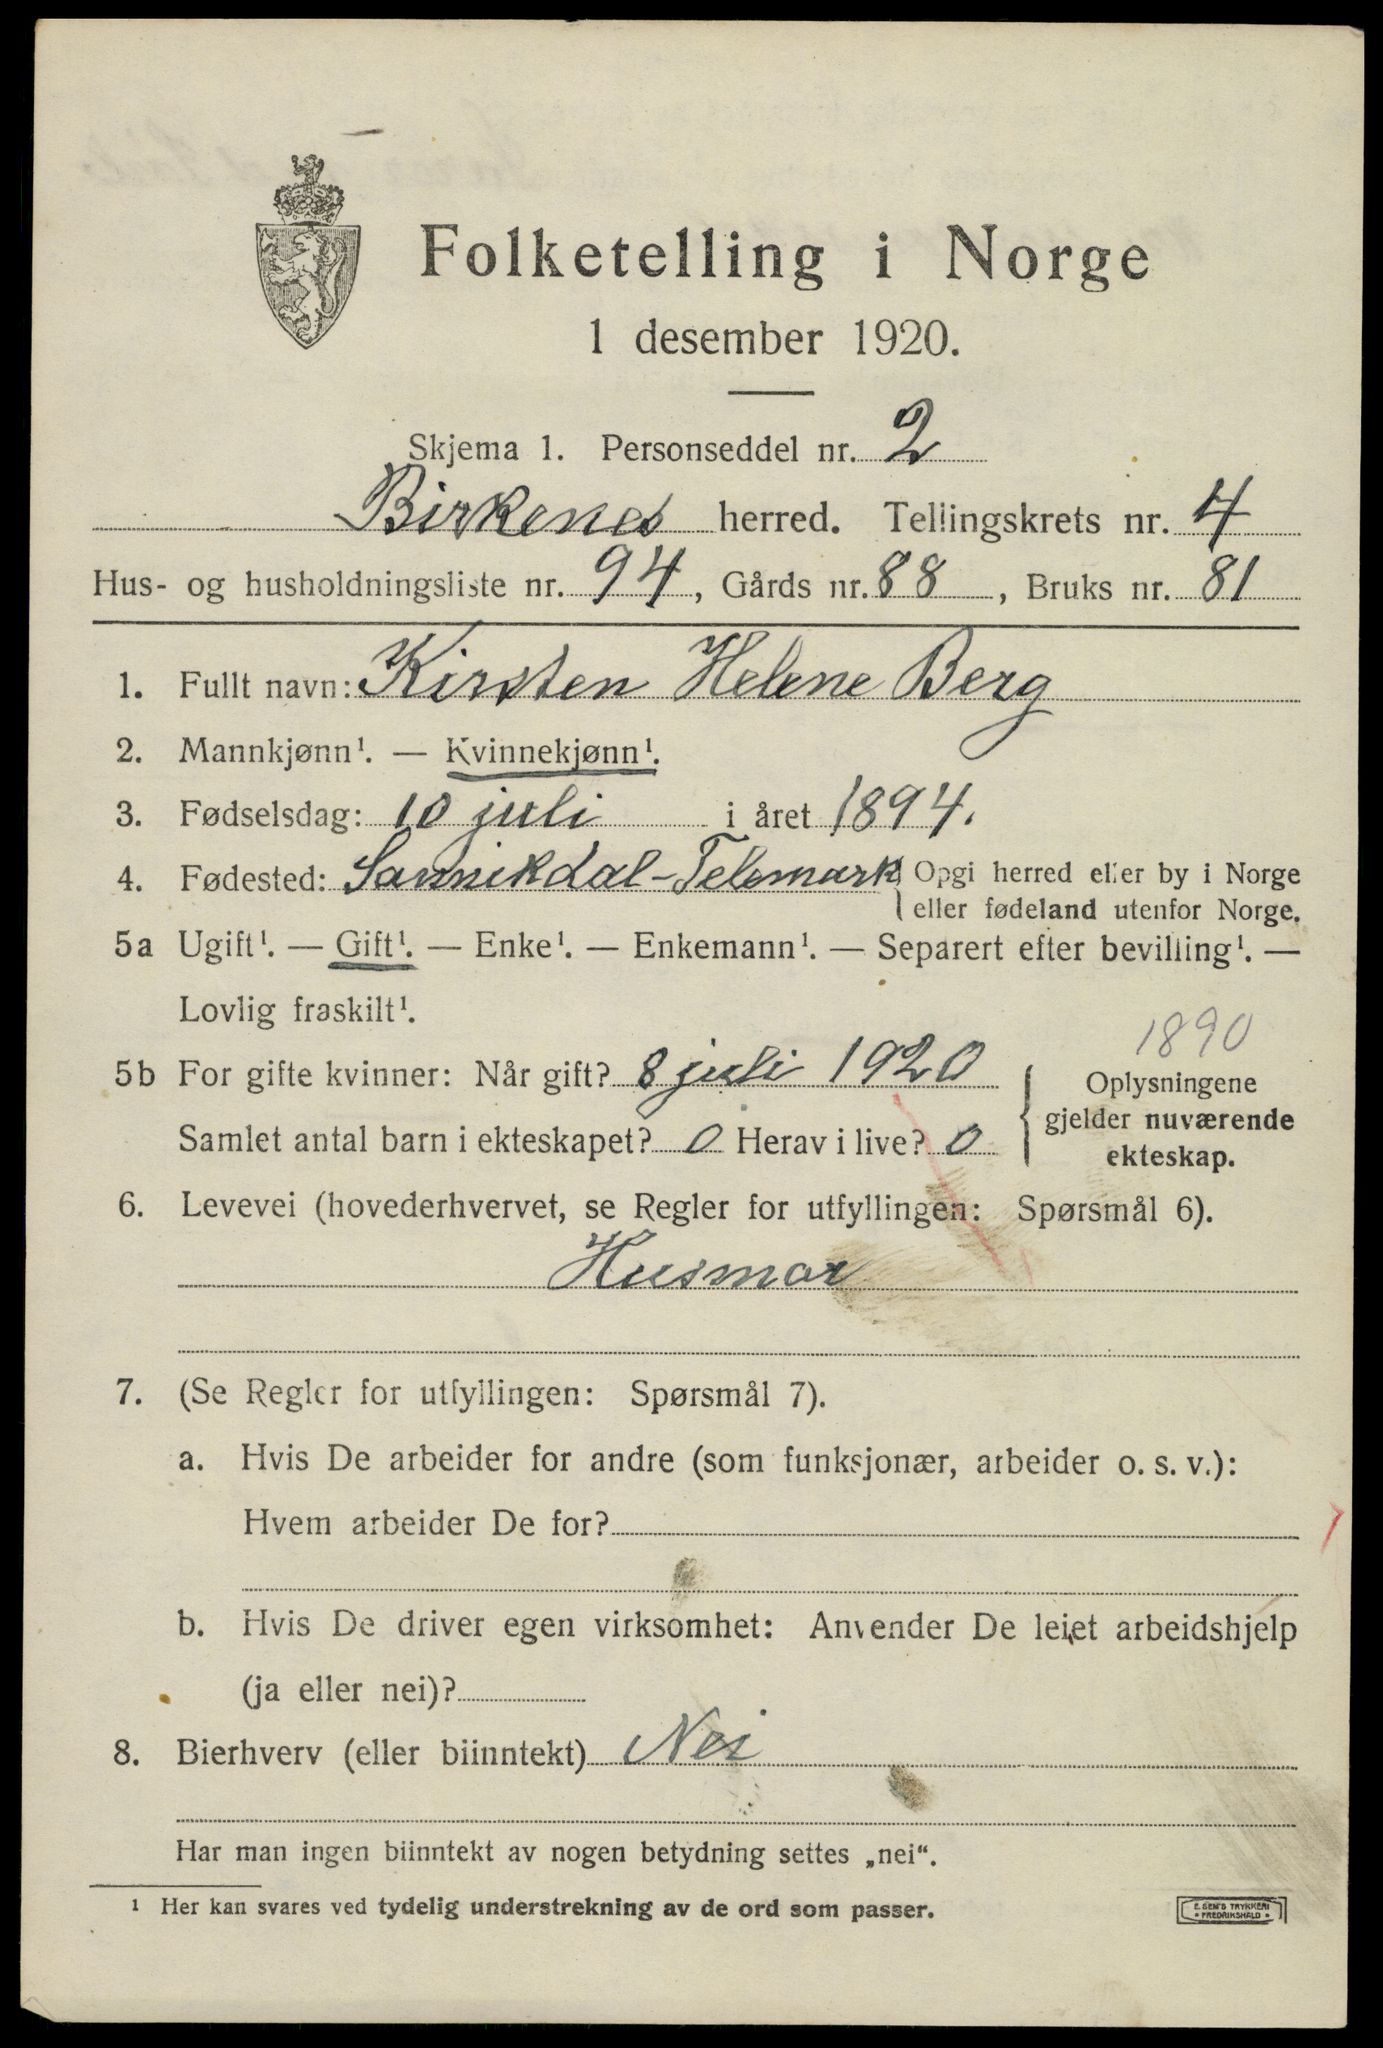 Folketelling i Norge
1 desember 1920.
Skjema 1. Personseddel nr. 2
Birkenes herred. Tellingskrets nr. 4
Hus- og husholdningsliste nr. 94, Gårds nr. 88, Bruks nr. 81
1. Fullt navn: Kirsten Helene Berg
2. Mannkjønn¹. — Kvinnekjønn¹.
3. Fødselsdag: 10 juli i året 1894.
4. Fødested: Sannikdal-Telemark { Opgi herred eller by i Norge
eller fødeland utenfor Norge.
5a Ugift¹. — Gift¹. — Enke¹. — Enkemann¹. — Separert efter bevilling¹. —
Lovlig fraskilt¹.
1890
5b For gifte kvinner: Når gift? 8 juli 1920
Samlet antal barn i ekteskapet? 0 Herav i live? 0
{ Oplysningene
gjelder nuværende
ekteskap.
6. Levevei (hovederhvervet, se Regler for utfyllingen: Spørsmål 6).
Husmor
7. (Se Regler for utfyllingen: Spørsmål 7).
a. Hvis De arbeider for andre (som funksjonær, arbeider o. s. v.):
Hvem arbeider De for?
b. Hvis De driver egen virksomhet: Anvender De leiet arbeidshjelp
(ja eller nei)?
8. Bierhverv (eller biinntekt) Nei
Har man ingen biinntekt av nogen betydning settes „nei“.
¹ Her kan svares ved tydelig understrekning av de ord som passer.
E. SEM'S TRYKKERI
FREDRIKSHALD